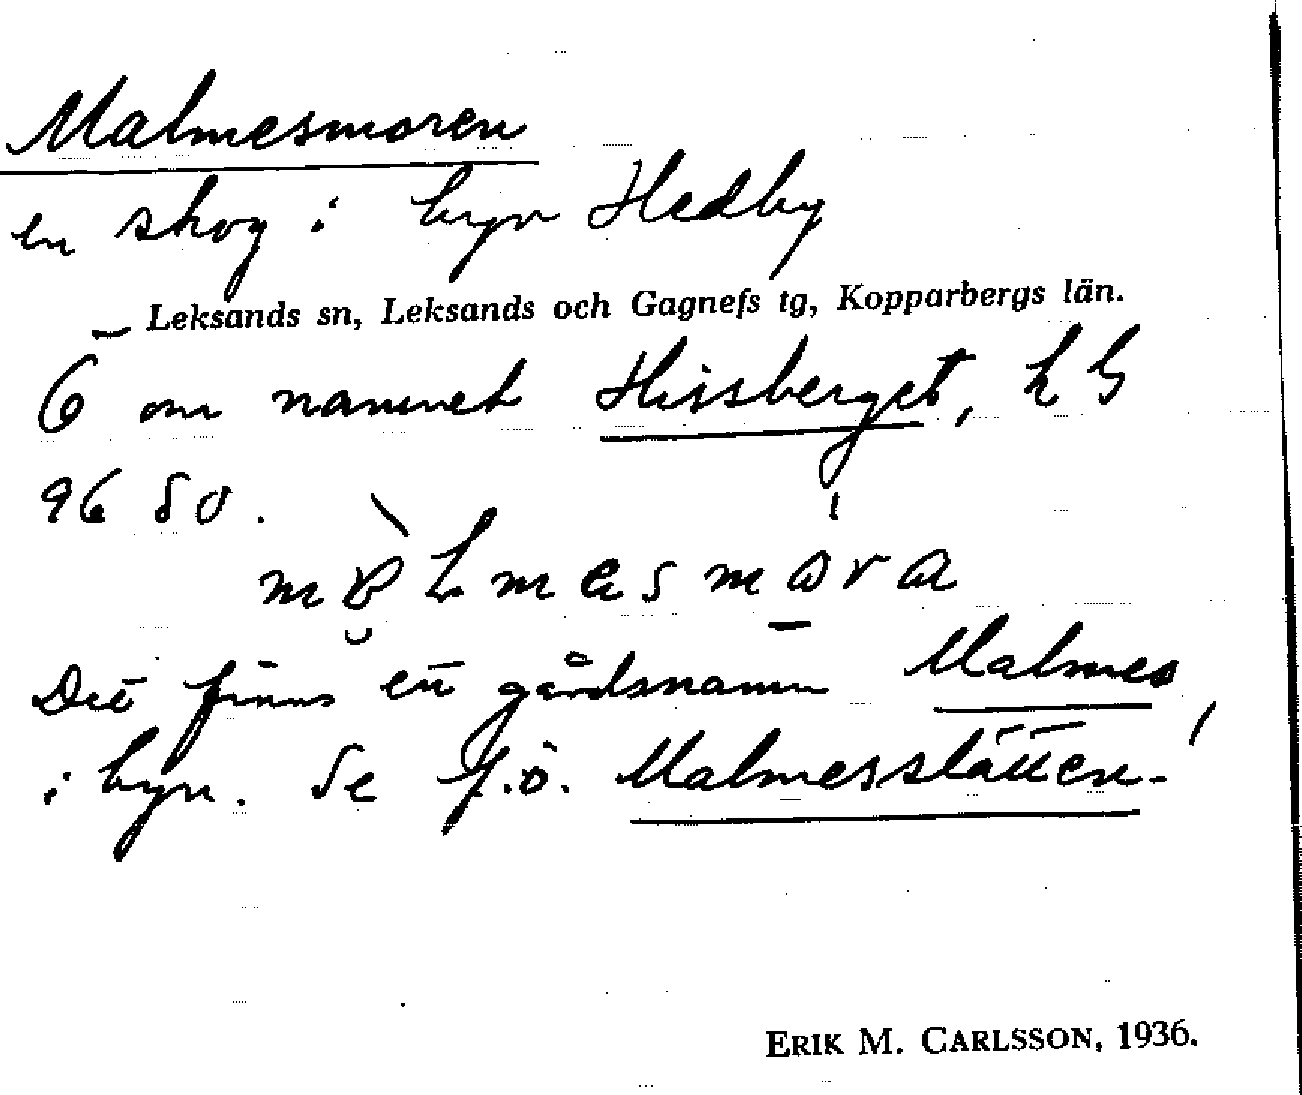 Malmesmoren
en skog i byn Hedby
Leksands sn, Leksands och Gagnefs tg, Kopparbergs län.
Ö om namnet Hissberget,
96 80.
Det finns ett gårdsnamn Malmes
i byn. Se f.ö. Malmesslätten!
ERIK M. CARLSSON, 1936.